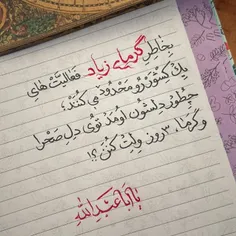 بِخاطِرِ گَرمایِ زیاد فَعالیَّت هایِ
یِک کِشوَر رو مَحدود می کُنَند؛
چِطور دِلِشون اومَد تویِ دِلِ صَحرا
و گَرما، ۳ روز وِلِت کُنَن ؟!
یااَباعَبدِاللهِ